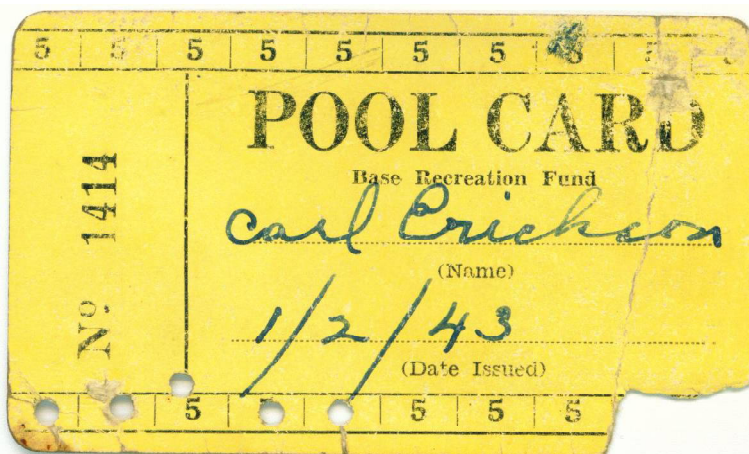 5 5 5 5 5 5 5 5 5 5
POOL CARD
Base Recreation Fund
Carl Erickson
(Name)
1/2/43
(Date Issued)
Nº 1414
5 5 5 5